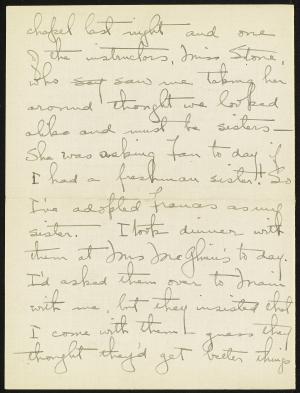 chapel last night and one
of the instructors, Miss Stone,
who say saw me taking her
around thought we looked
alike and must be sisters –
She was asking Fan to day if
I had a freshman sister! So
I've adopted Frances as my
sister. I took dinner with
them at Mrs McGhin's to day.
I'd asked them over to Main
with me, but they insisted that
I come with them – guess they
thought they'd get better things